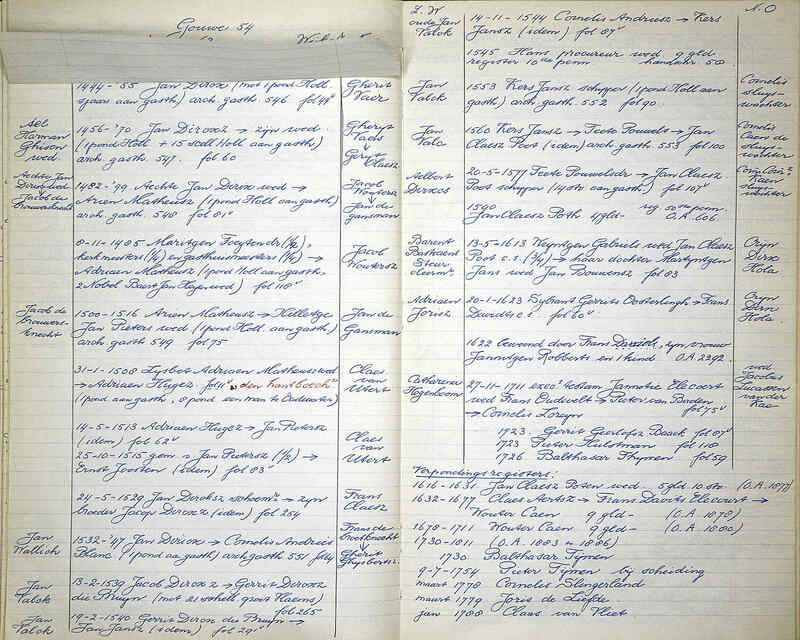 Gouwe 54
1444-'55 Jan Dircx (met 1 pond Holl
spaar aan gasth) arch. gasth. 546 fol 48v
Gherit
Vaer
Ael
Harman
Ghisen
wed.
1456-'70 Jan Dircxz → zijn wed
(1 pond Holl + 15 stell Holl aan gasth)
arch gasth. 547. fol 60
Gherys
Claesz
Aechte Jan
Dircx wed
Jacob de
1482-'99 Aechte Jan Dircx wed →
Arien Matheusz (1 pond Holl aan gasth)
arch gasth 548 fol 81v
Jacob
Woutersz
Jan de
gansman
8-11-1485 Maritgen
kerkmeesters (1/2) en gasthuismeesters →
Adriaen Matheusz (1 pond Holl aan gasth,
2 Nobel wed) → fol 110v
Jacob
Woutersz
Jacob de
brouwers-
knecht
1500-1516 Arien Matheusz → Hillestge
Jan Pieters wed (1 pond Holl aan gasth)
arch gasth 549 fol 75
Jan de
Gansman
31-1-1508 Lysbet Adriaen Matheus wed
→ Adriaen Hugez fol 11v
(1 pond aan gasth, 8 pond een man te Oudewater)
Claes
van
Utert
14-5-1513 Adriaen Hugez → Jan Pietersz
(idem) fol 62v
25-10-1515 gem. s Jan Pietersz (1/2) →
Ernst Joosten (idem) fol 83v
Claes
van
Utert
24-5-1529 Jan Dircksz schoenm. → zyn
broeder Jacop Dircxz (idem) fol 254
Frans
Claesz
Jan
Wallich
1532-'47 Jan Dircxz → Cornelis Andriesz
Blanc (1 pond aa gasth) arch gasth 551 fol 4
Frans de
Gherit
Ghysbertsz
Jan
Valck
13-2-1539 Jacob Dircxz → Gerrit Dircxz
die Bruyn (met 21 schell groot Vlaems)
fol 265
Jan
Valck
19-2-1540 Gerrit Dircx die Bruyn →
Jan Jansz (idem) fol 291v
Z.W
N.O
oude Jan
Valck
14-11-1544 Cornelis Andriesz → Kers
Jansz (idem) fol 87v
1545 Hans procureur wed 9 gld
register 10de penn
Jan
Valck
1553 Kers Jansz schipper (1 pond Holl aan
gasth) arch gasth. 552 fol 90.
Cornelis
sluys-
wachter
Jan
Valc
1560 Kers Jansz → Feete Pouwels → Jan
Claesz Poot (idem) arch gasth 553 fol 100
Cornelis
Caen de
sluys-
wachter
Aelbert
Dircxs
20-5-1577 Feete Pouwelsdr → Jan Claesz
Poot schipper (14 sts aan gasth) fol 107v
Caen
sluys-
wachter
Jan Claesz Poth 4 gld- O.A. 606
Barent
Bastiaens
Steur
13-5-1613 Weyntgen Gabriels wed Jan Claesz
Poot c.s. (3/4) → haar dochter Martyntgen
Jans wed Jan Bouwensz fol 83
Cryn
Dirx
Kola
Adriaen
Jorisz
20-1-1623 Sybrant Gerrits Oosterlingh → Frans
fol 60v
Cryn
Dirx
Kola.
1622 bewoond door Frans zyn vrouw
Jannetgen Robberts en 1 kind O.A. 2292
Catharina
Hogenboom
27-11-1711 exec. testam Jannetie Elevoert
wed Frans Oudwelt → Pieter van Baden
→ Cornelis Loreyn fol 75v
wed
Jacobus
Lucassen
van der
Kae
1723. Gerrit Geerlofsz Baack fol 87v
1723 Pieter Hulstman fol 110
1726 Balthasar Thymen fol 59
Verpondingsregisters:
1616-1631 Jan Claesz Poten wed. 5 gld 10 st (O.A. 1877)
1632-1677 Claes Aertsz → Frans Davits Elevoert →
Wouter Caen 9 gld- (O.A. 1878)
1678-1711 Wouter Caen 9 gld- (O.A. 1880)
1730-1811 (O.A. 1883 - 1886)
1730 Balthasar Tymen
9-7-1754 Pieter Tymen bij scheiding
maart 1778 Cornelis Slingerland
maart 1779 Joris de Liefde
jan 1788 Claas van Vliet